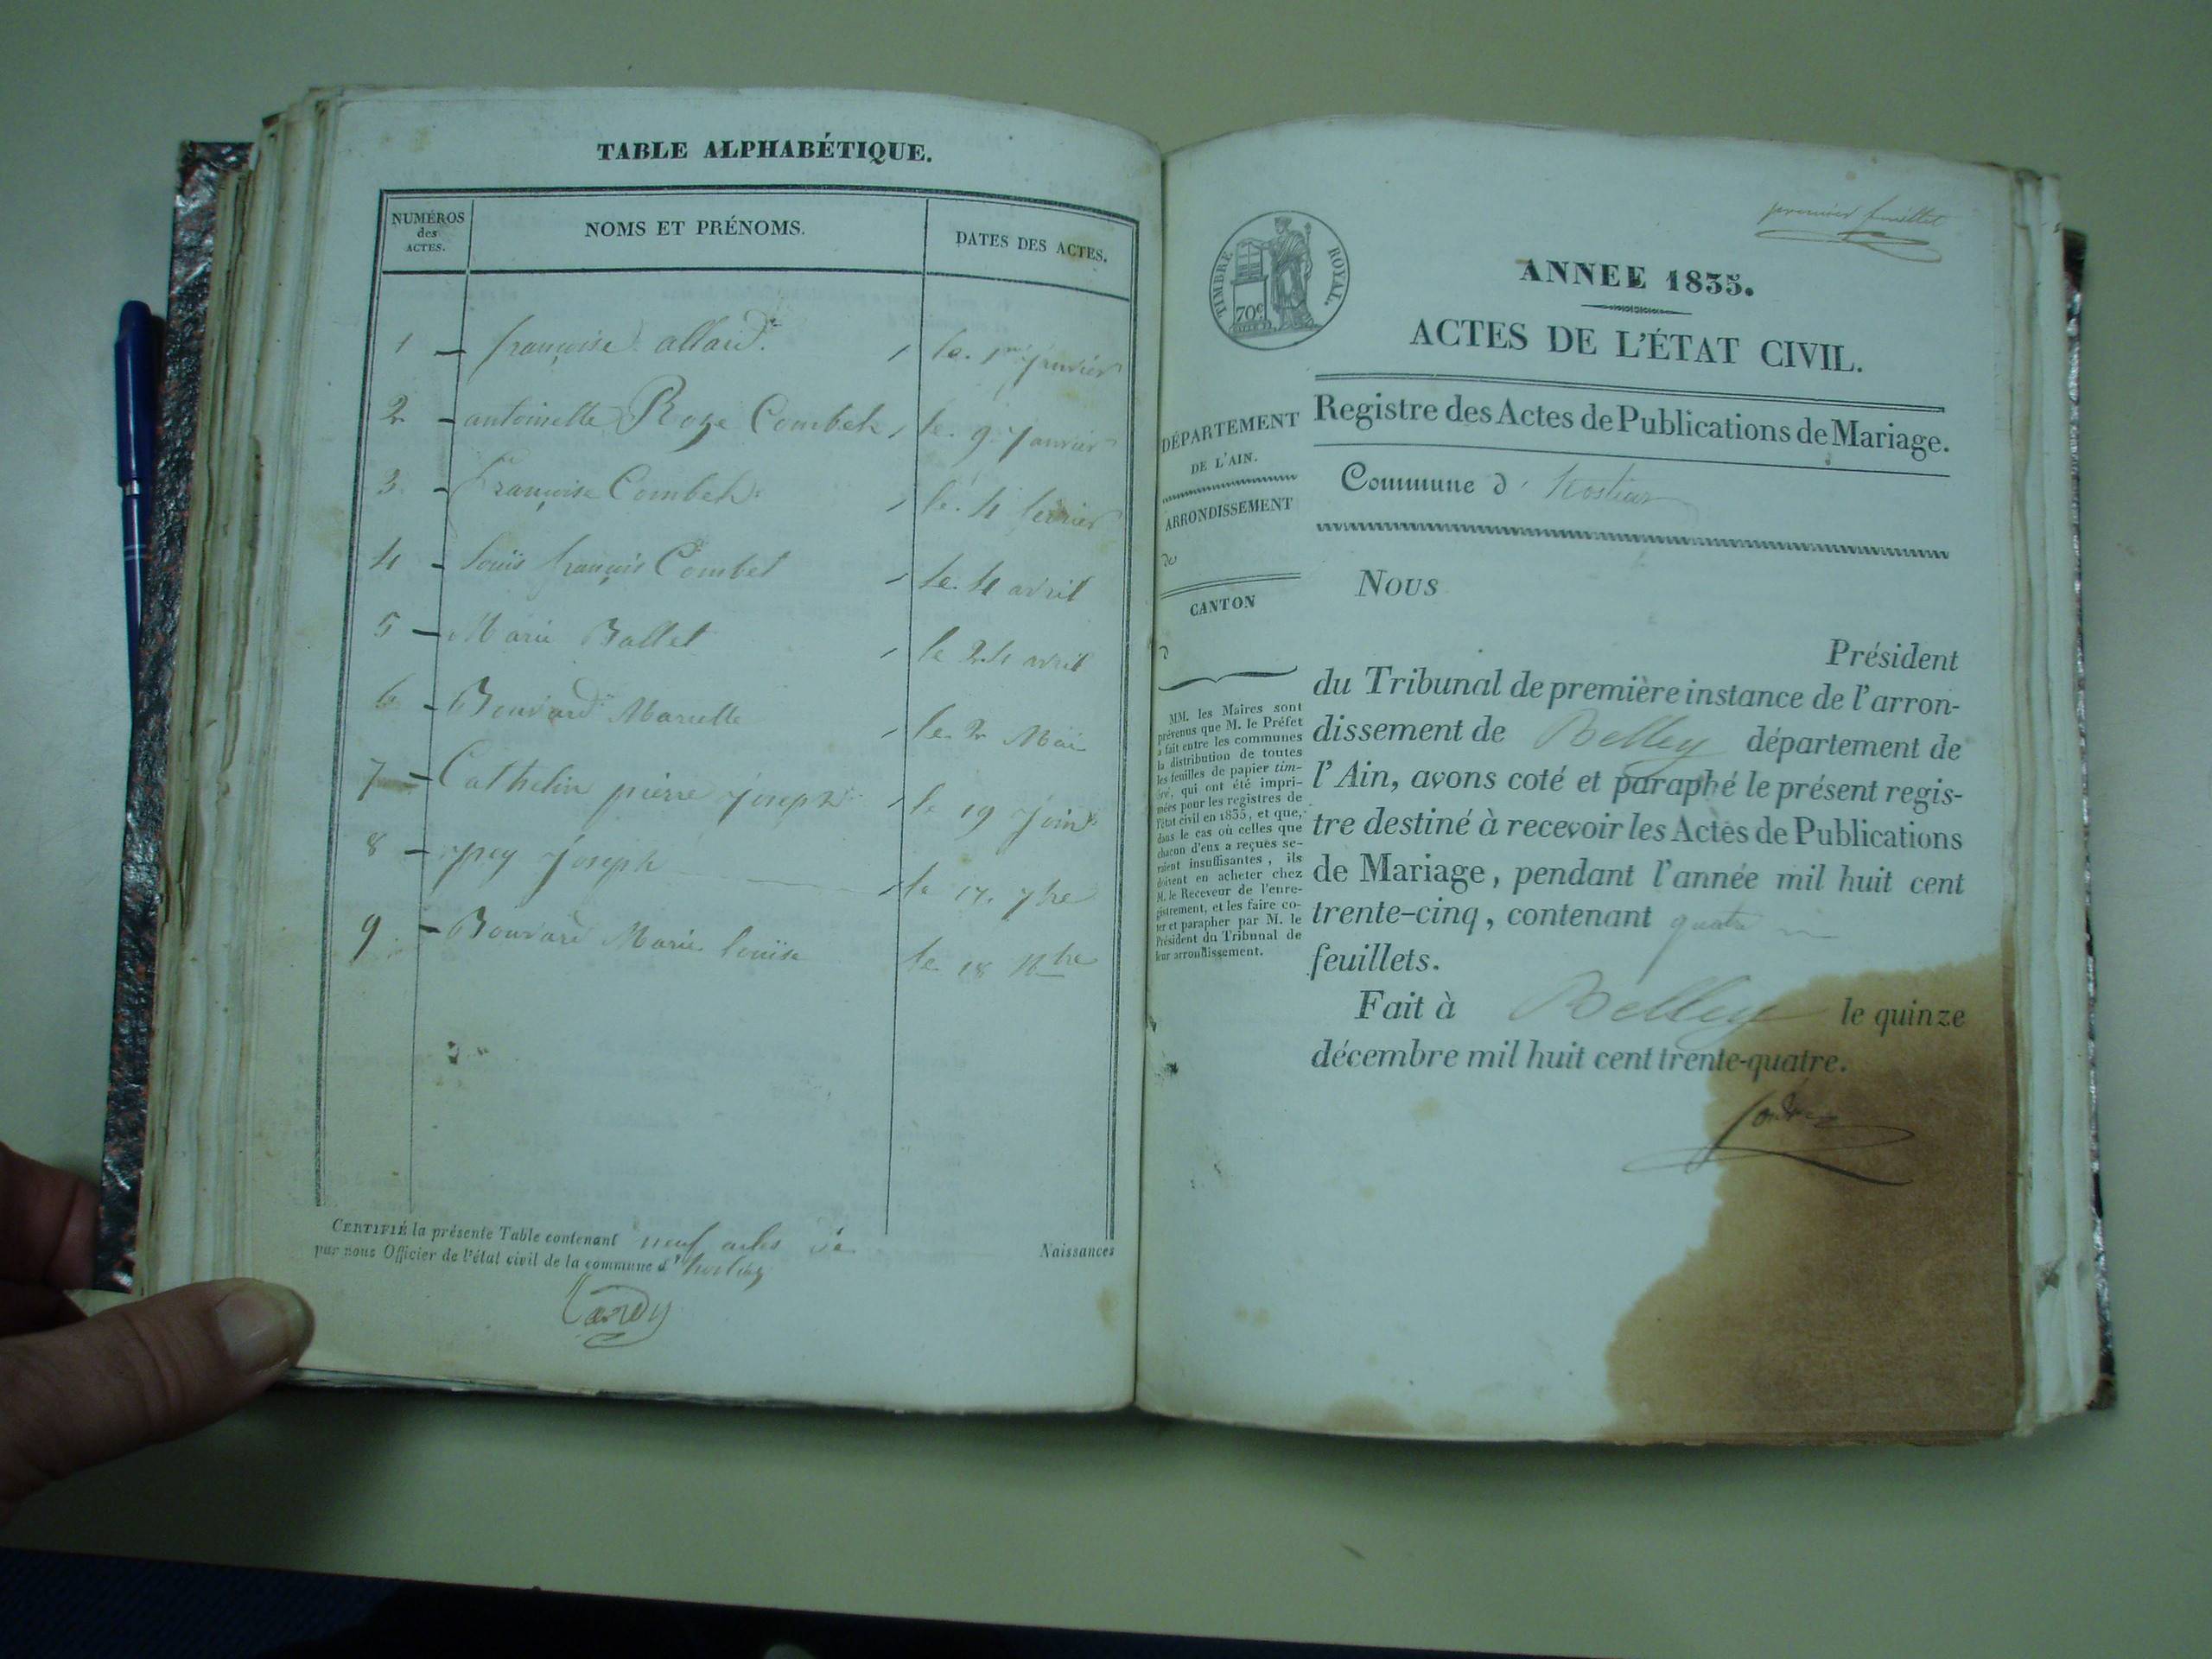 TABLE ALPHABÉTIQUE.
NUMÉROS des ACTES.
NOMS ET PRÉNOMS.
DATES DES ACTES.
1 — françoise allard. le. 1er Janvier
2 — antoinette Roze Combet le. 9 Janvier
3 — françoise Combet le. 4 fevrier
4 — louis françois Combet le. 4 avril
5 — Marie Ballet le 24 avril
6 — Bouvard Mariette le 2 Mai
7 — Cathelin pierre Joseph le 19 Juin
8 — Joseph le 17. 7bre
9 — Bouvard Marie louise le 18
CERTIFIÉ la présente Table contenant neuf actes de Naissances
par nous Officier de l'état civil de la commune d'
Tardy
premier feuillet
TIMBRE ROYAL.
70c
ANNEE 1835.
ACTES DE L'ÉTAT CIVIL.
DÉPARTEMENT
DE L'AIN.
ARRONDISSEMENT
de
CANTON
d
MM. les Maires sont
prévenus que M. le Préfet
a fait entre les communes
la distribution de toutes
les feuilles de papier tim-
bré, qui ont été impri-
mées pour les registres de
l'état civil en 1835, et que,
dans le cas où celles que
chacun d'eux a reçues se-
raient insuffisantes, ils
doivent en acheter chez
M. le Receveur de l'enre-
gistrement, et les faire co-
ter et parapher par M. le
Président du Tribunal de
leur arrondissement.
Registre des Actes de Publications de Mariage.
Commune d'
Nous
Président
du Tribunal de première instance de l'arron-
dissement de Belley département de
l'Ain, avons coté et paraphé le présent regis-
tre destiné à recevoir les Actes de Publications
de Mariage, pendant l'année mil huit cent
trente-cinq, contenant quatre
feuillets.
Fait à Belley le quinze
décembre mil huit cent trente-quatre.